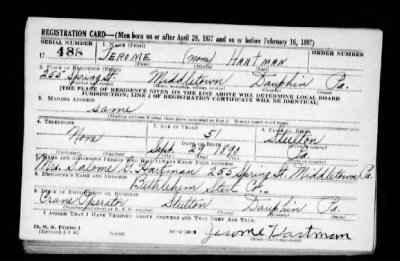 REGISTRATION CARD—(Men born on or after April 28, 1877 and on or before February 16, 1897)
SERIAL NUMBER 1. NAME (Print) ORDER NUMBER
U 488 JEROME (none) HARTMAN
2. PLACE OF RESIDENCE (Print)
255 Spring St. Middletown Dauphin Pa.
[THE PLACE OF RESIDENCE GIVEN ON THE LINE ABOVE WILL DETERMINE LOCAL BOARD
JURISDICTION; LINE 2 OF REGISTRATION CERTIFICATE WILL BE IDENTICAL]
3. MAILING ADDRESS
Same
[Mailing address if other than place indicated on line 2. If same insert word same]
4. TELEPHONE 5. AGE IN YEARS 6. PLACE OF BIRTH
51 Steelton
DATE OF BIRTH
None Sept. 29 1890 Pa.
7. NAME AND ADDRESS OF PERSON WHO WILL ALWAYS KNOW YOUR ADDRESS
Mrs. Salome G. Hartman 255 Spring St. Middletown, Pa.
8. EMPLOYER'S NAME AND ADDRESS
Bethlehem Steel Co.
9. PLACE OF EMPLOYMENT OR BUSINESS
Crane Operator Steelton Dauphin Pa
I AFFIRM THAT I HAVE VERIFIED ABOVE ANSWERS AND THAT THEY ARE TRUE.
D. S. S. Form 1
(Revised 4-1-42)
Jerome Hartman